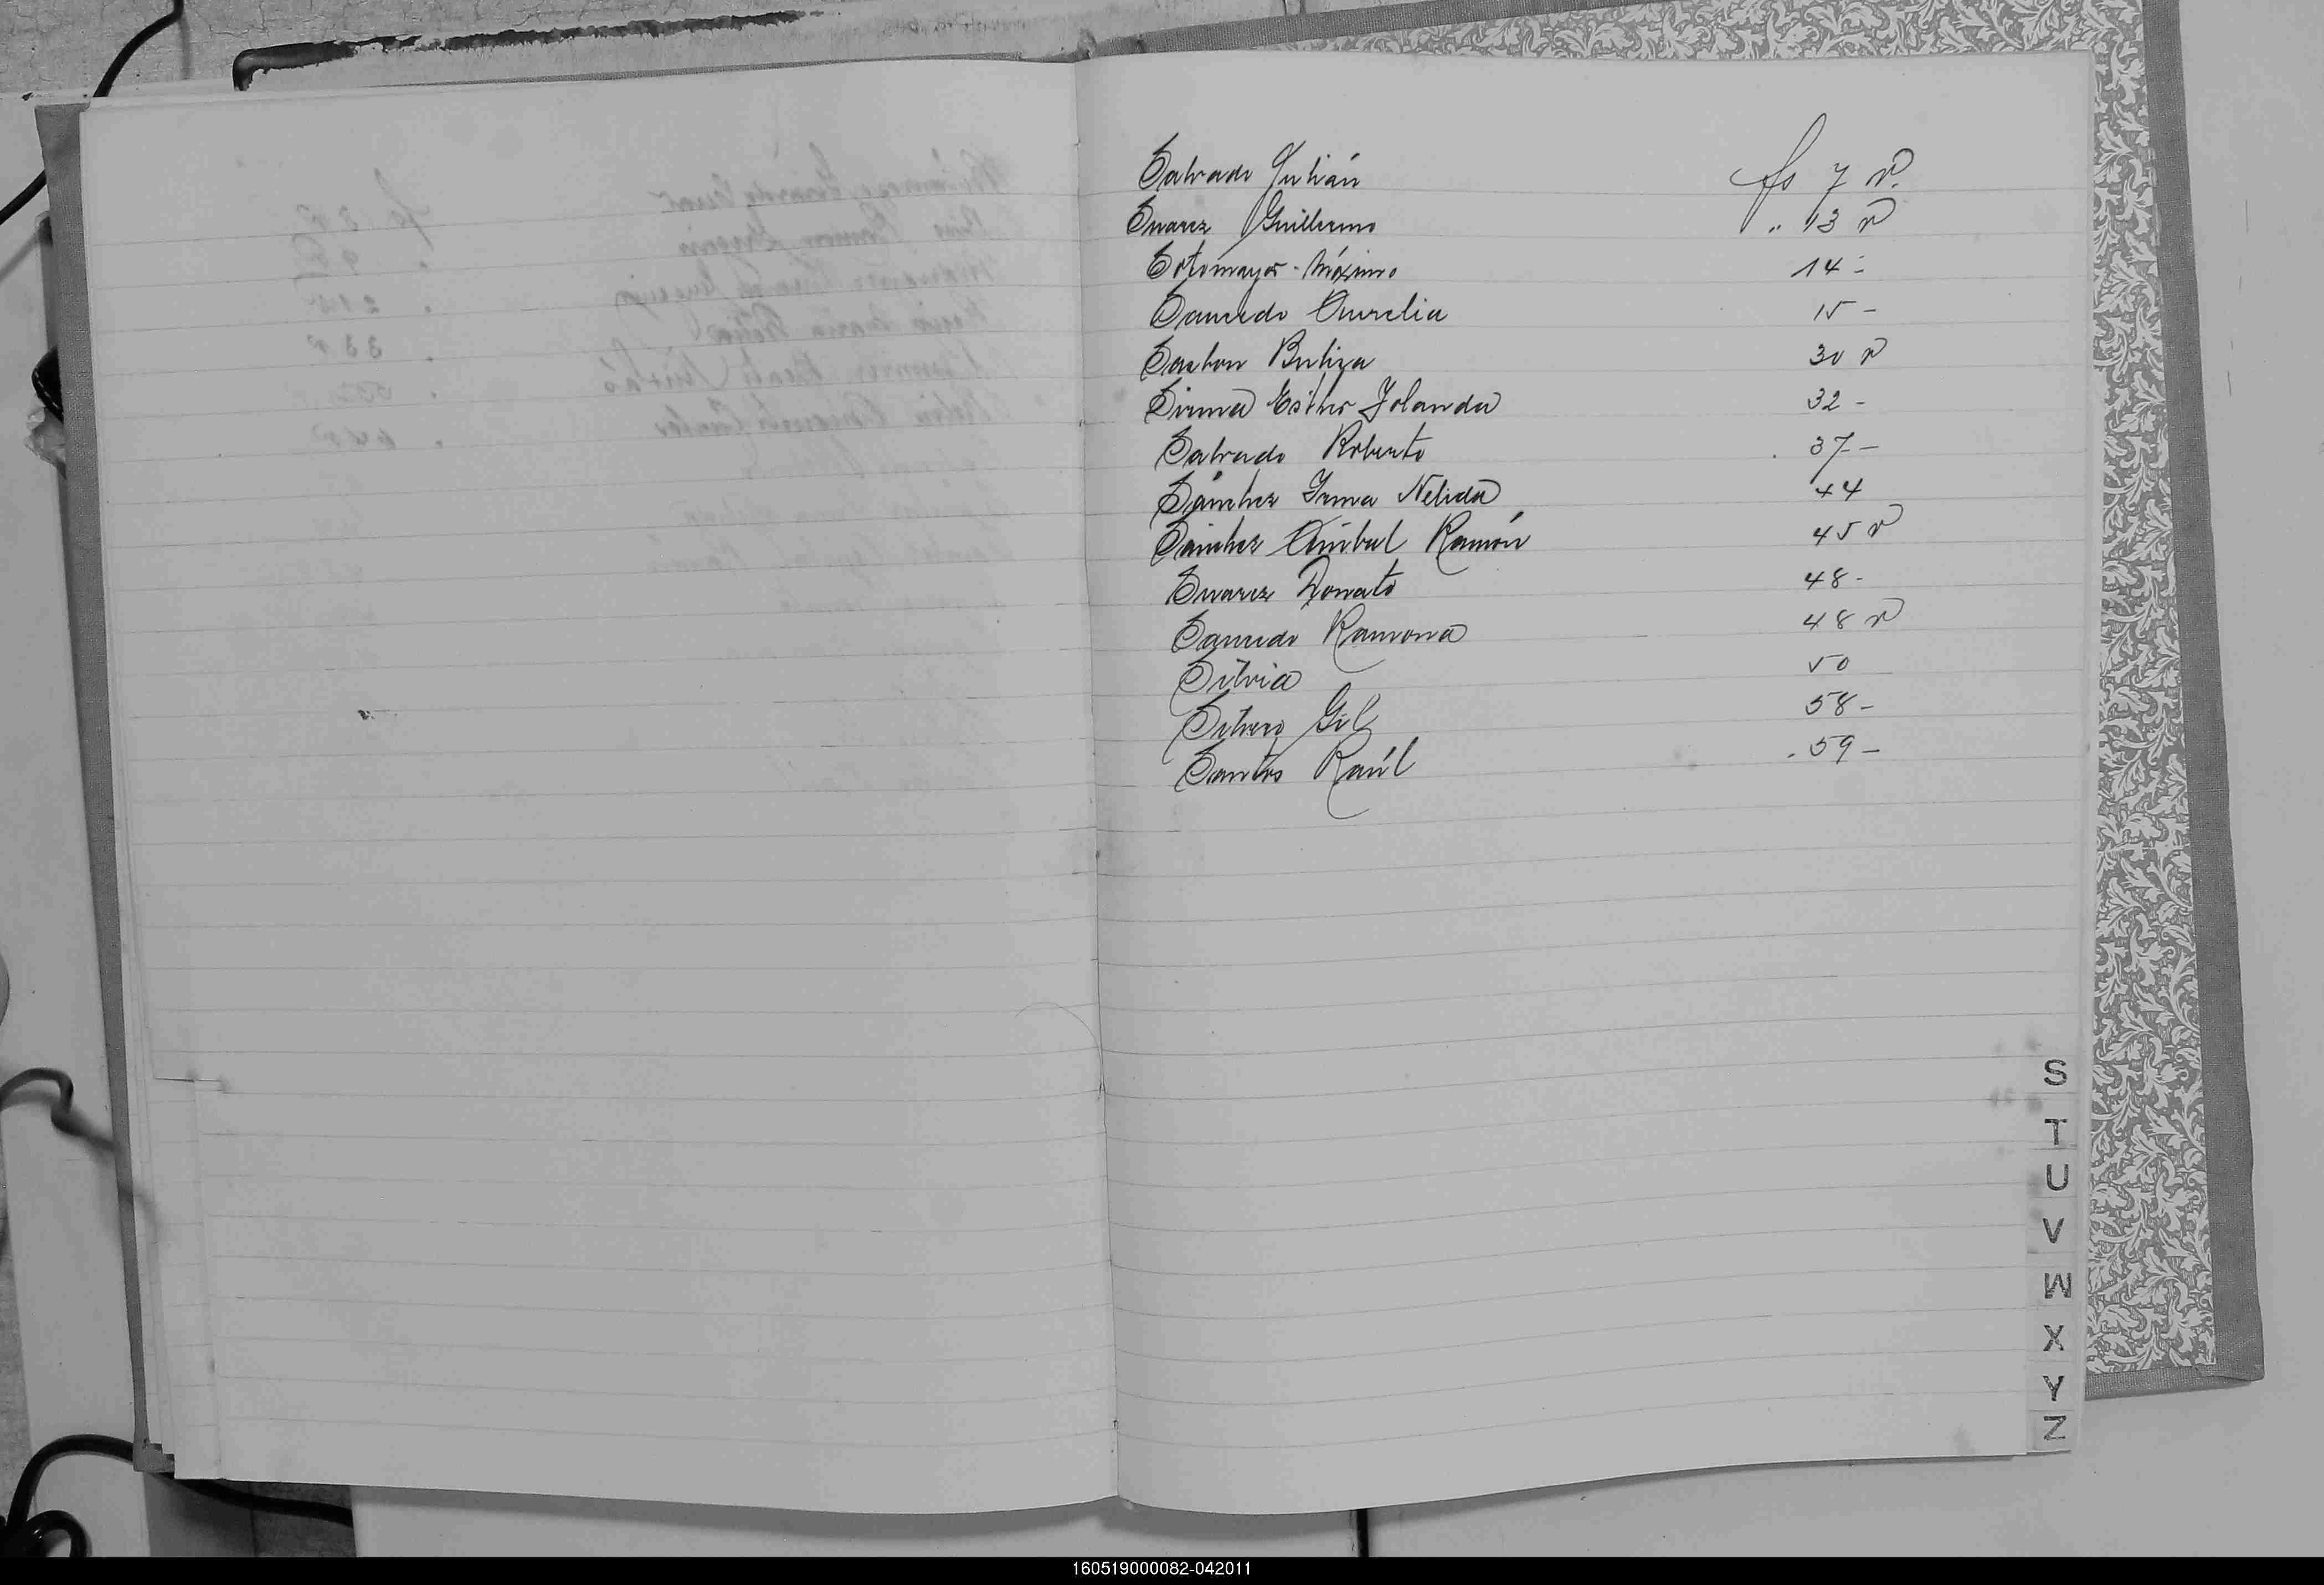 Salvado Julián fs 7 v.
Suarez Guillermo " 13 v
Sotomayor - Máximo 14 -
Saucedo Aurelia 15 -
Gaston Butiza 30 v
Sirma Esther Jolanda 32 -
Salvado Roberto 37 -
Sánchez Irma Nelida 44
Sánchez Anibal Ramón 45 v
Suarez Donato 48 -
Saucedo Ramona 48 v
Silvia 50
Silvero Gil 58 -
Santos Raúl 59 -
S
T
U
V
W
X
Y
Z
160519000082-042011